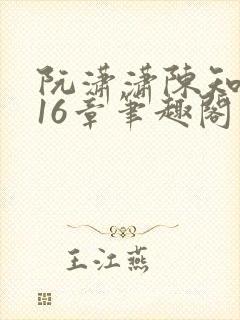 阮潇潇陈知
16章笔趣阁
王江燕